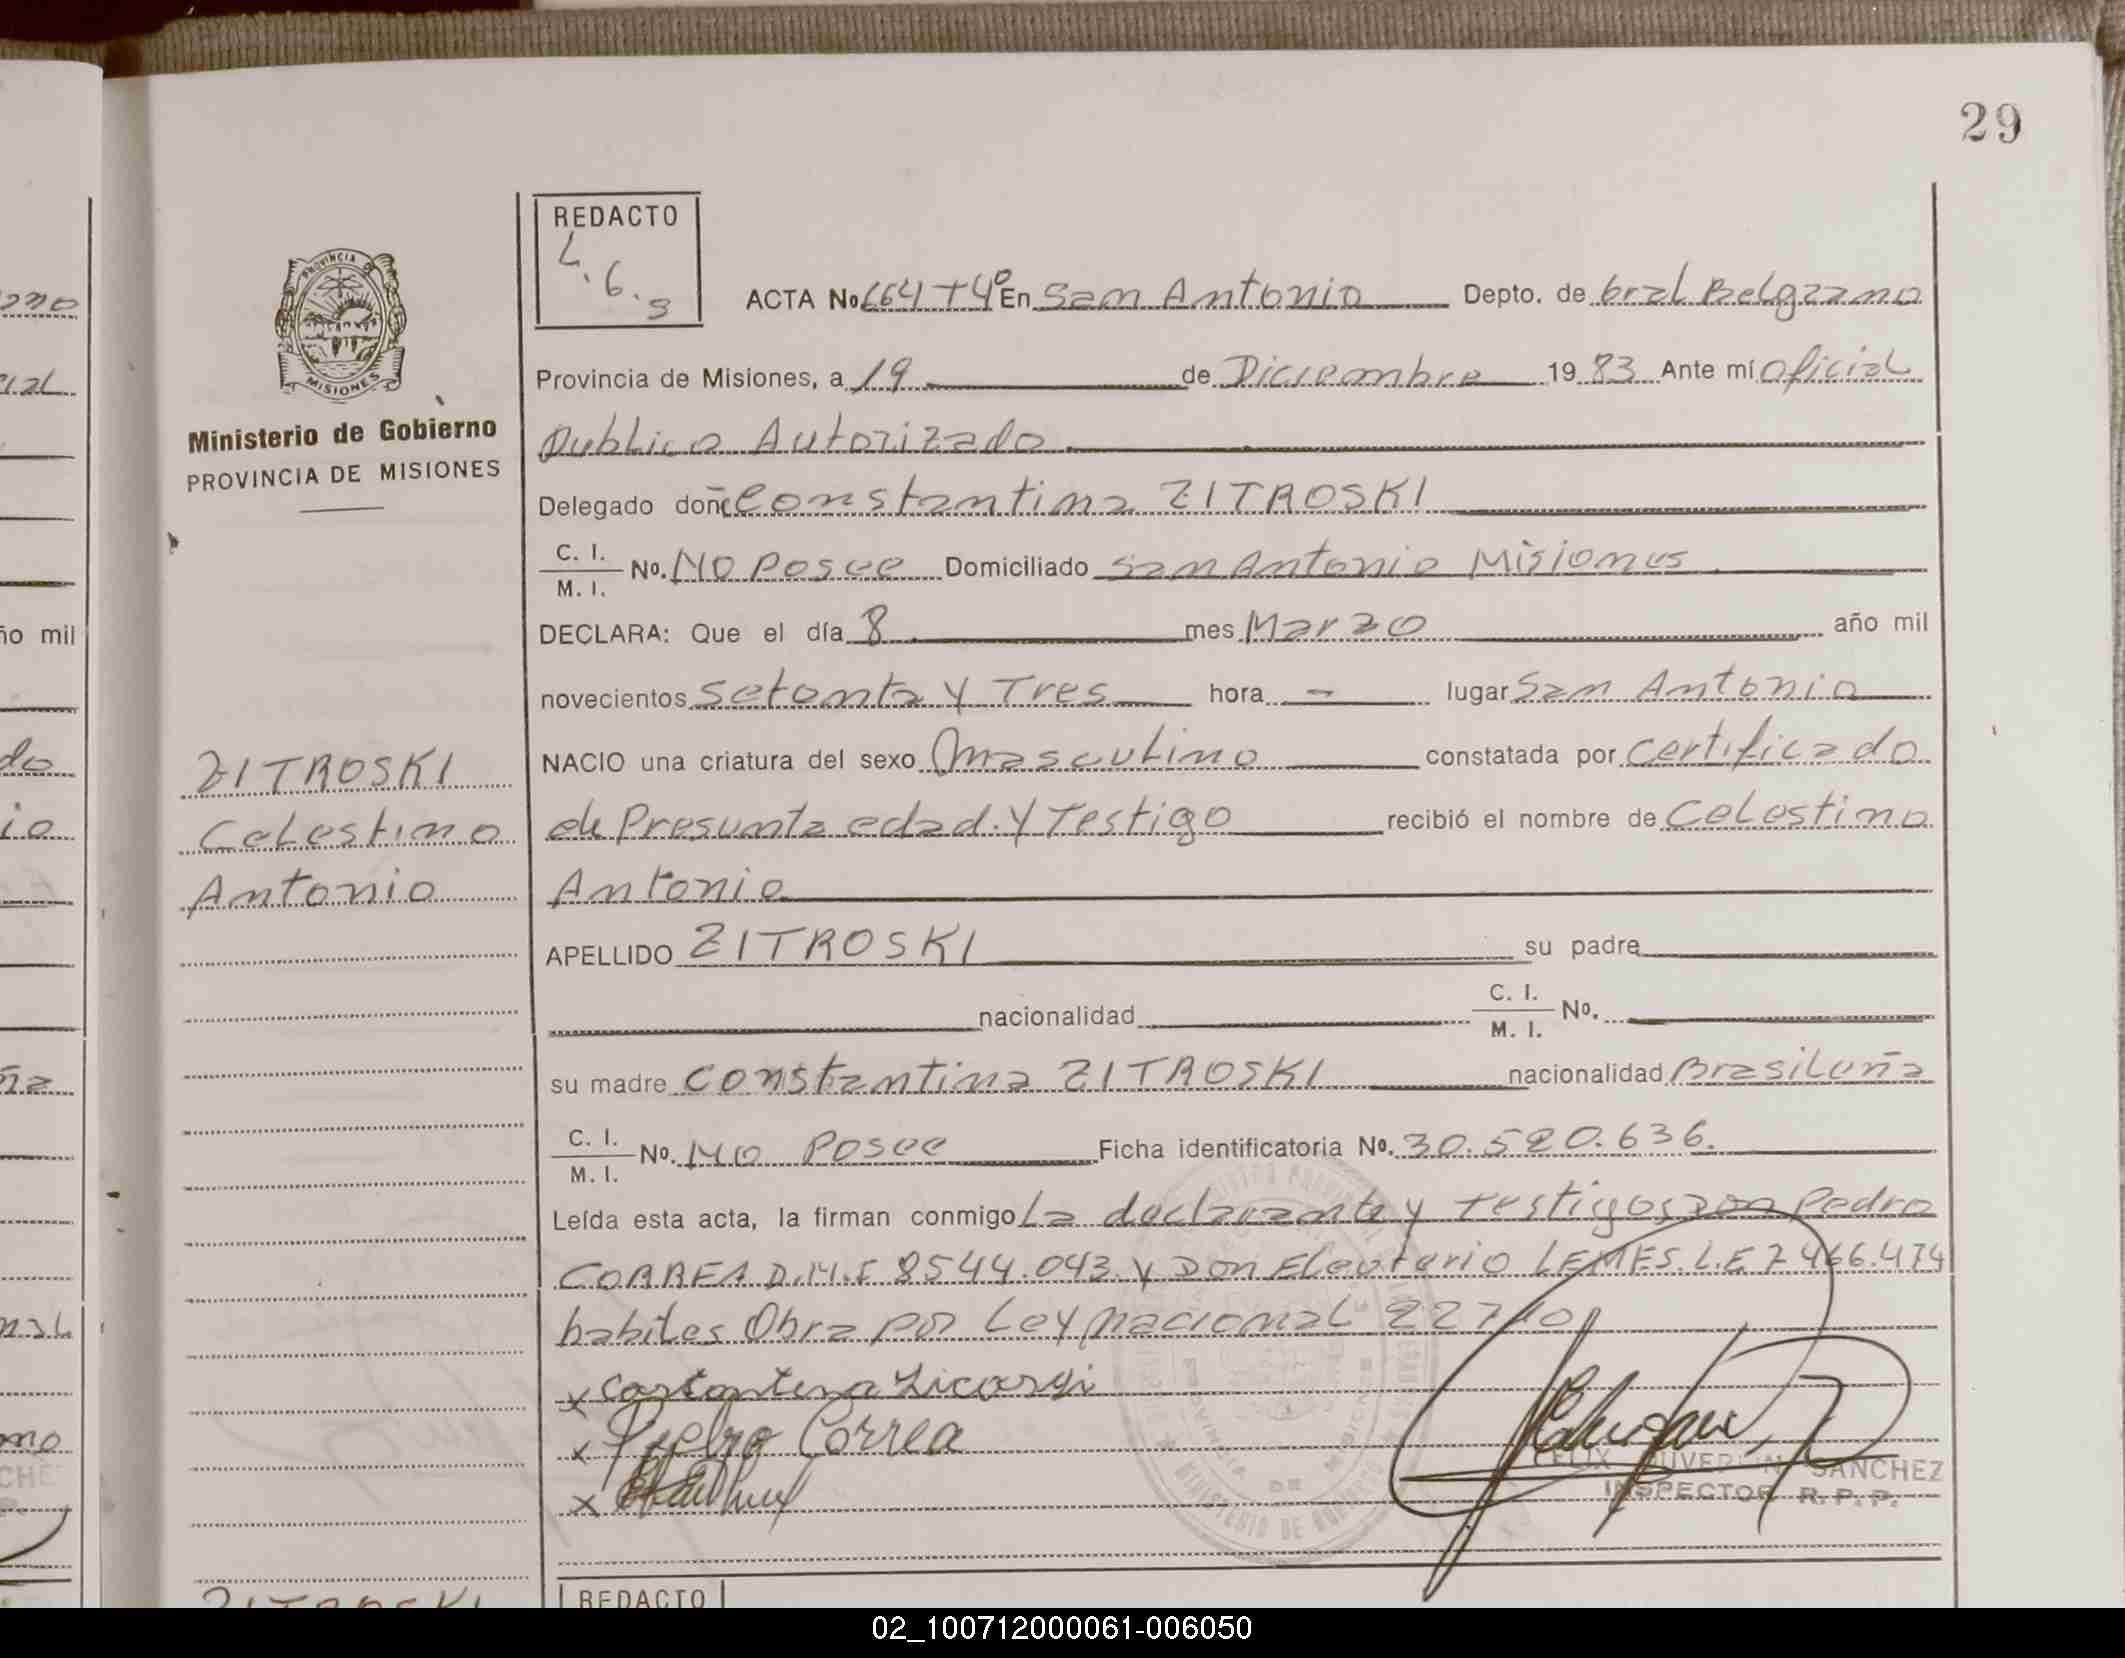 29
REDACTO
L.6.S
ACTA No 664 T 4º En San Antonio Depto. de Gral Belgrano
Provincia de Misiones, a 19 de Diciembre 19 83 Ante mí oficial
Publico Autorizado
Delegado doña Constantina ZITROSKI
C. I. / M. I. No. No Posee Domiciliado San Antonio Misiones
DECLARA: Que el día 8 mes Marzo año mil
novecientos setenta y Tres hora - lugar San Antonio
NACIO una criatura del sexo Masculino constatada por Certificado
de Presunta edad. Y Testigo recibió el nombre de Celestino
Antonio
APELLIDO ZITROSKI su padre
nacionalidad C. I. / M. I. No.
su madre Constantina ZITROSKI nacionalidad Brasileña
C. I. / M. I. No. No Posee Ficha identificatoria No. 30.520.636.
Leída esta acta, la firman conmigo La declarante y testigos Don Pedro
CORREA D.N.I 8544.043. y Don Eleuterio LEMES. L.E 7466.474
habiles Obra por Ley Nacional 22710
x
x Pedro Correa
x
FELIX DUVERLIN SANCHEZ
INSPECTOR R. P. P.
MINISTERIO DE GOBIERNO
PROVINCIA DE MISIONES
PROVINCIA DE
MISIONES
Ministerio de Gobierno
PROVINCIA DE MISIONES
ZITROSKI
Celestino
Antonio
ZITROSKI
REDACTO
ño mil
02_100712000061-006050